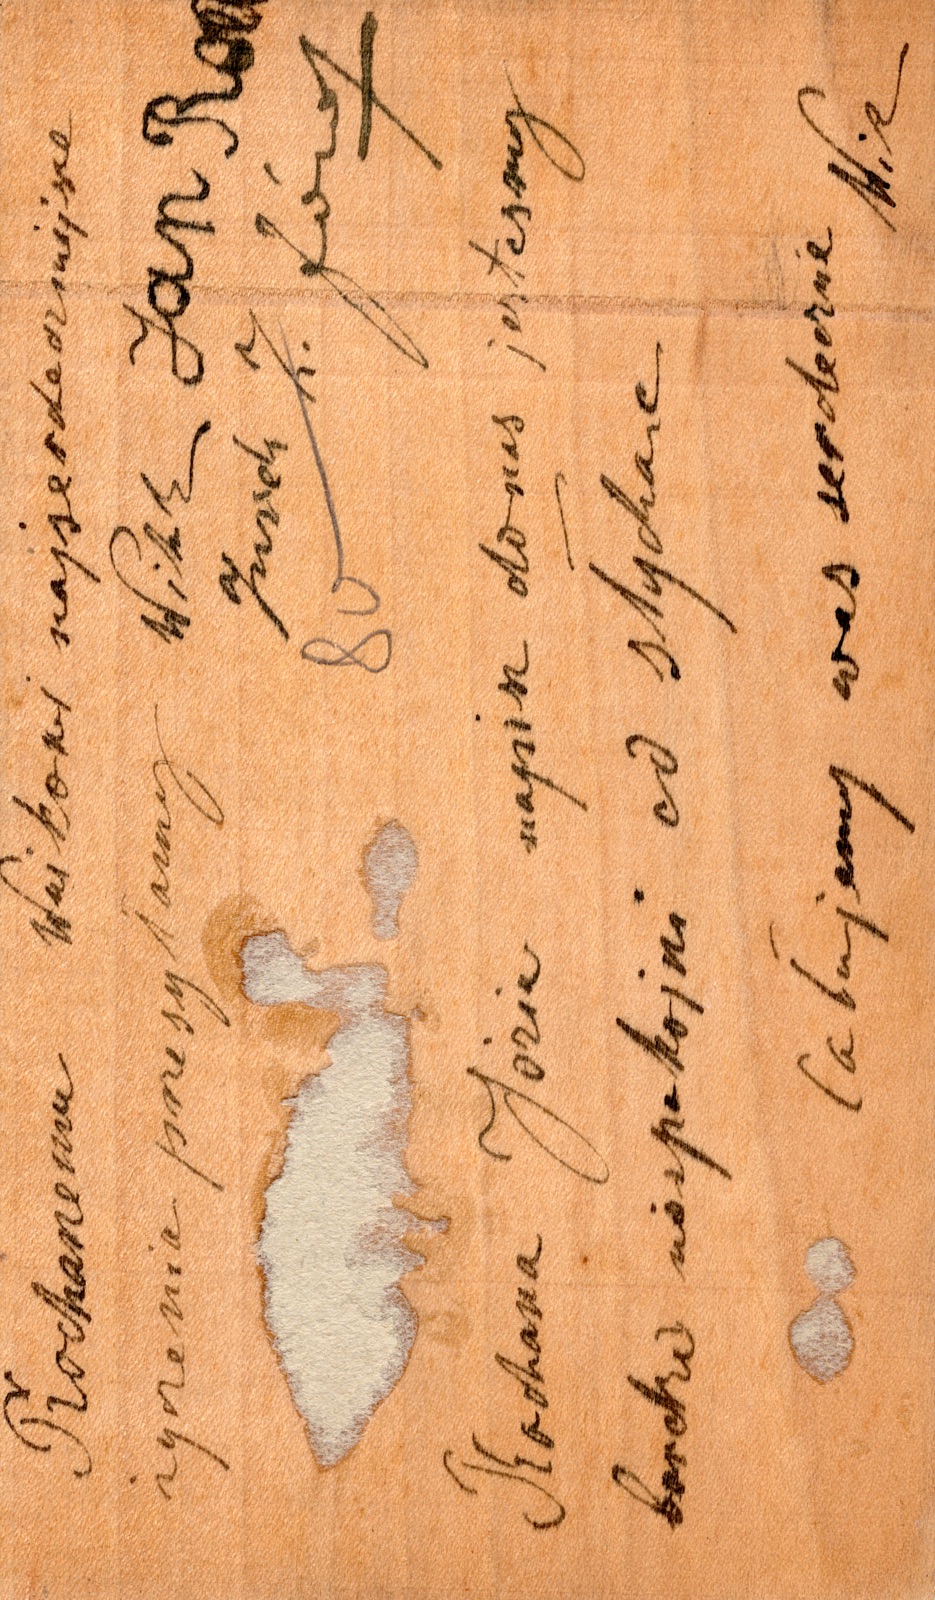 Kochanemu Wujkowi najserdeczniejsze
życzenia przesyłamy Witek Jan
Jurek K. Józef
80
Kochana Józiu napisz do nas jestesmy
bardzo niespokojni co słychanc
Całujemy was serdecznie Wik